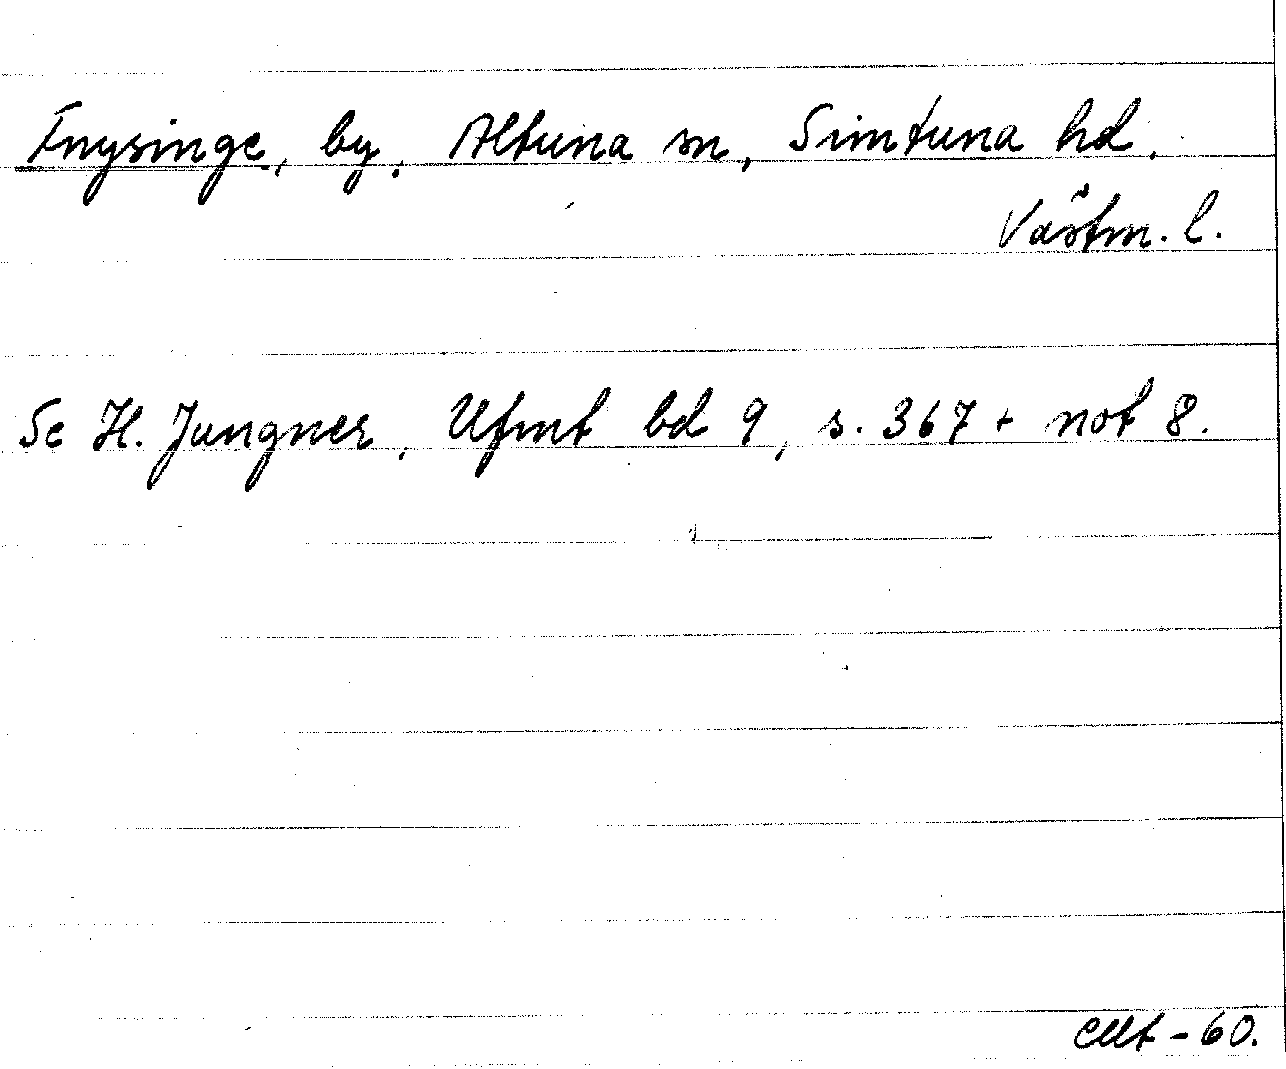 Fnysinge, by, Altuna sn, Simtuna hd.
Västm. l.
Se H. Jungner, Ufmt bd 9, s. 367 + not 8.
CMt - 60.